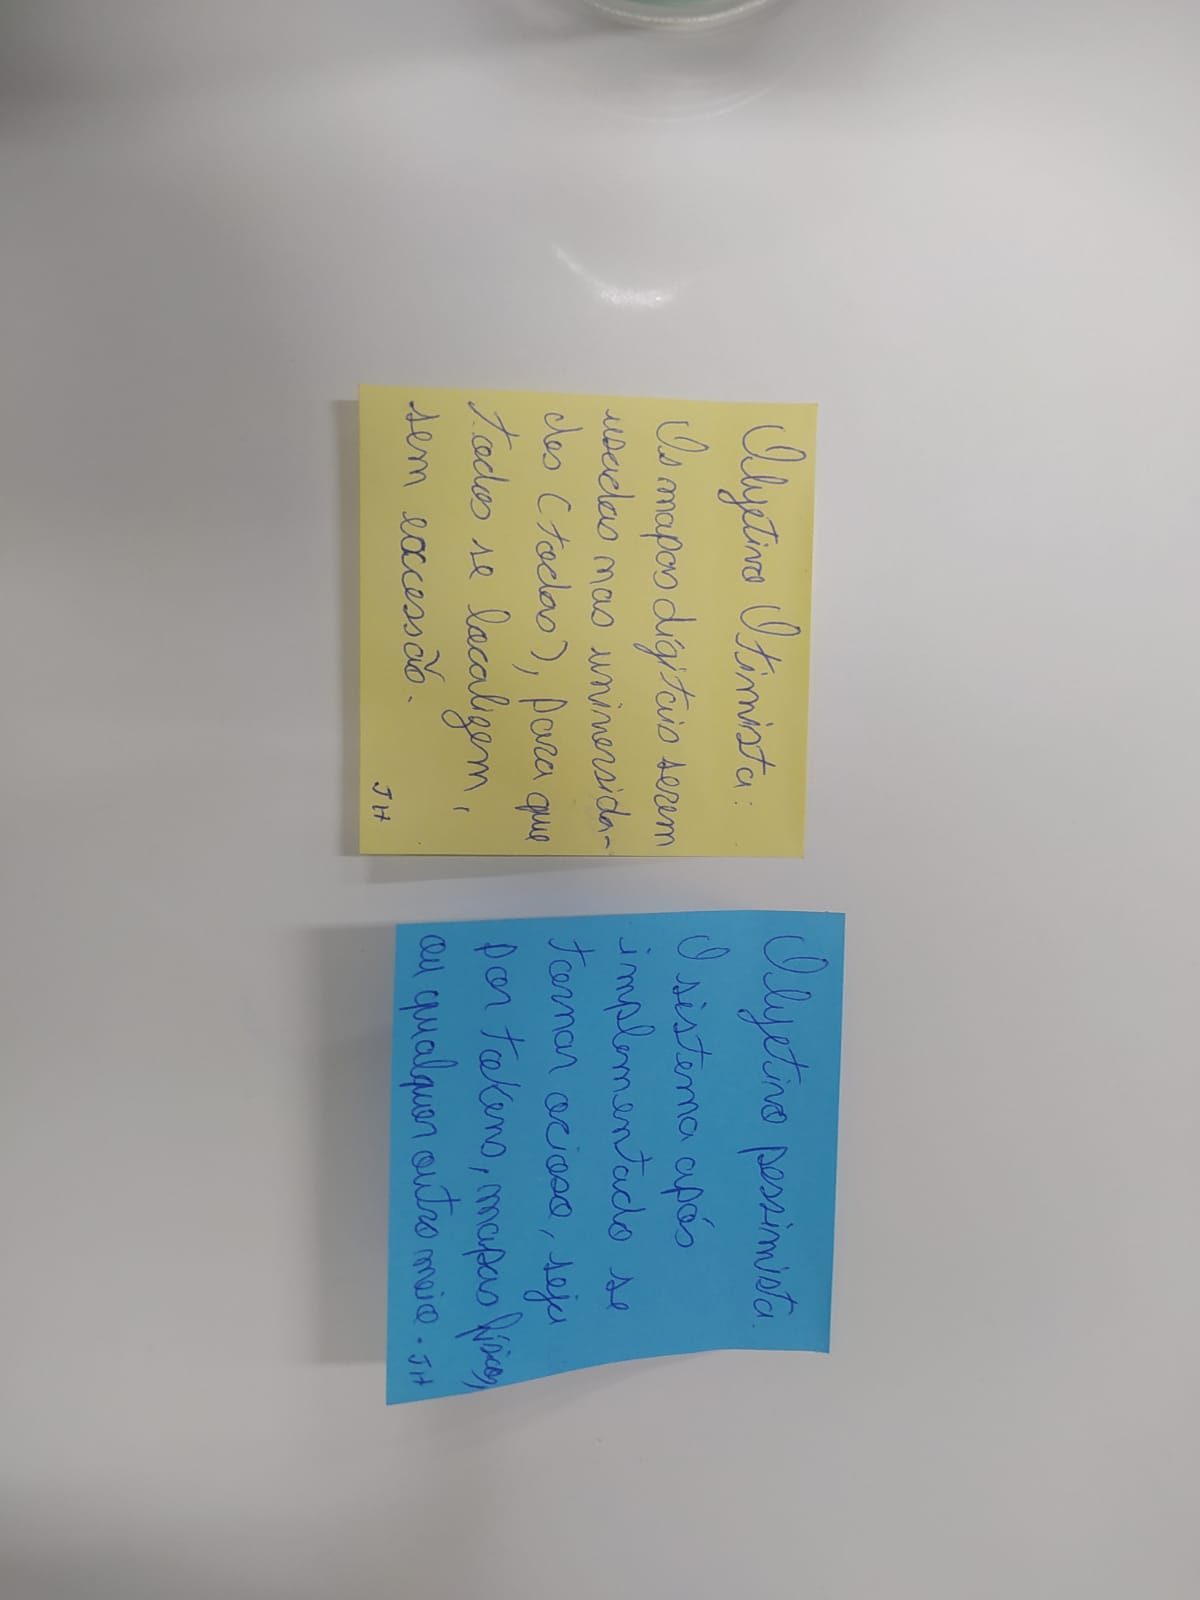 Objetivo Otimista:
Os mapas digitais serem
usados nas universida-
des (todas), para que
todos se localizem,
sem excessão.
JH
Objetivo pessimista.
O sistema após
implementado se
tornar ocioso, seja
por totens, mapas físicos,
ou qualquer outro meio. JH